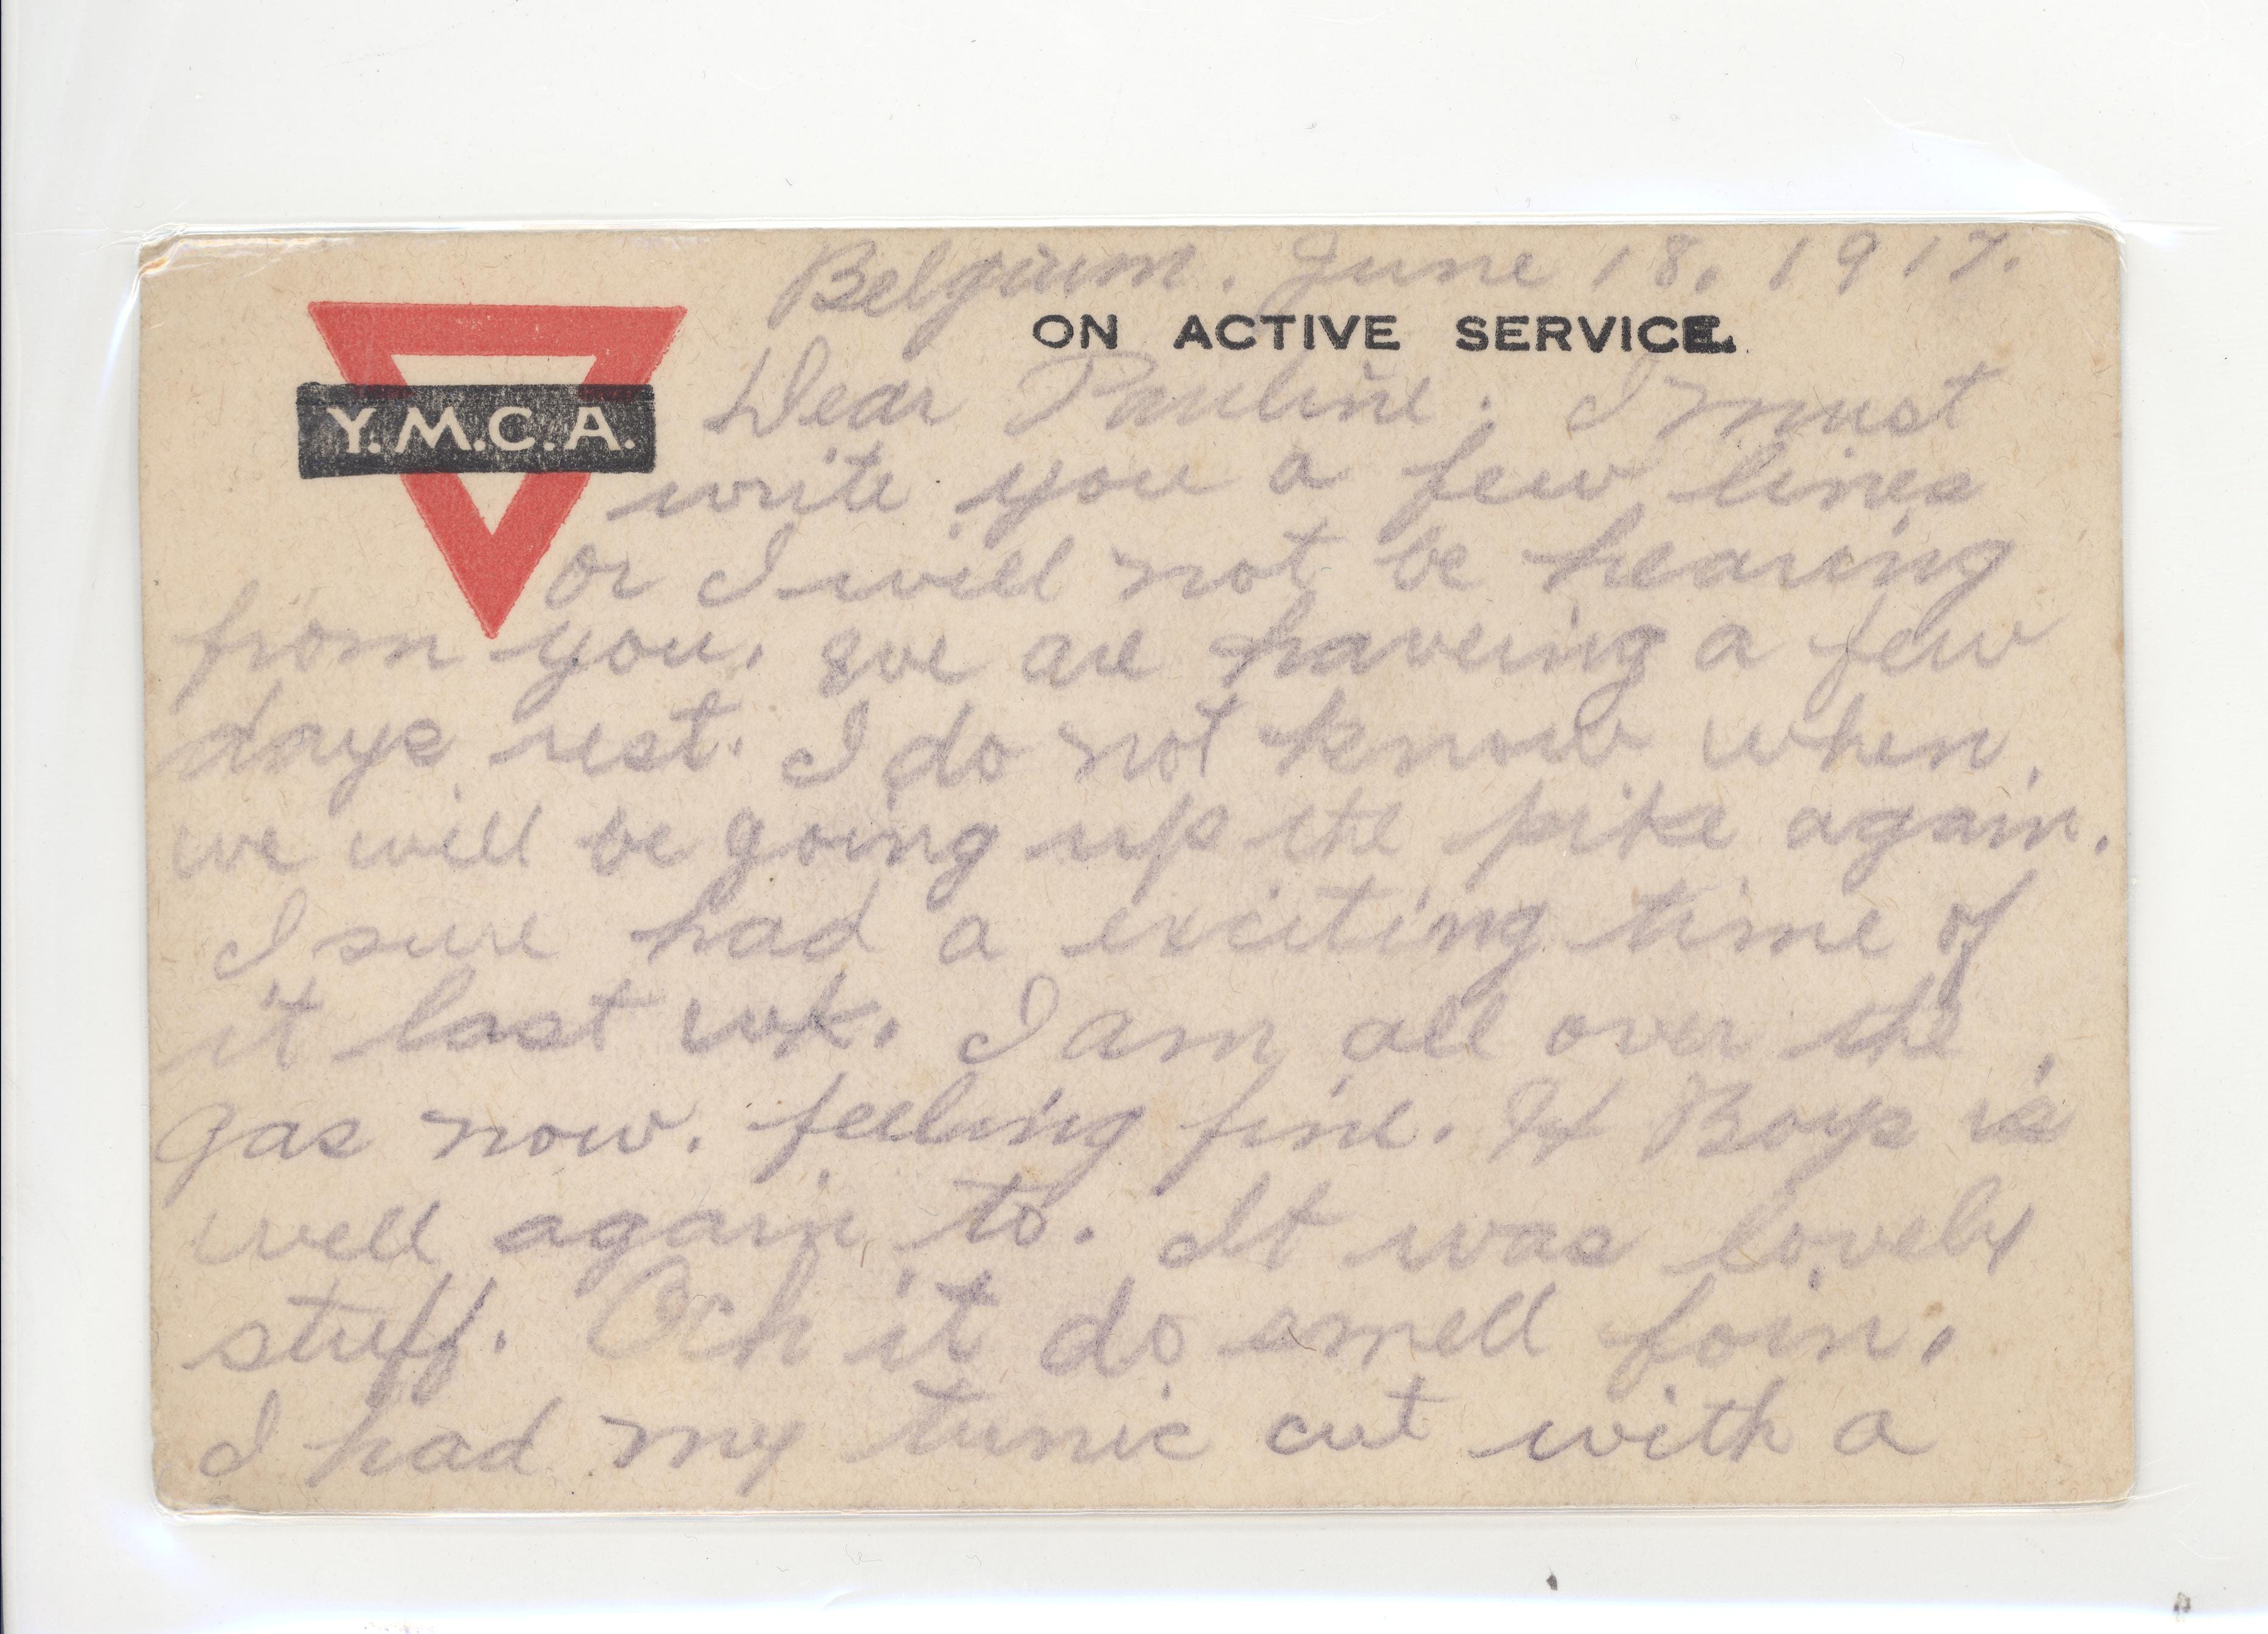 Belgium. June 18. 1917.
ON ACTIVE SERVICE.
Y.M.C.A.
Dear Pauline. I must
write you a few lines
or I will not be hearing
from you. We are haveing a few
days rest. I do not know when
we will be going up the pike again.
I sure had a exciting time of
it last wk. I am all over the
gas now. feeling fine. Boys is
well again to. It was lovely
stuff. Och it do smell foin.
I had my tunic cut with a